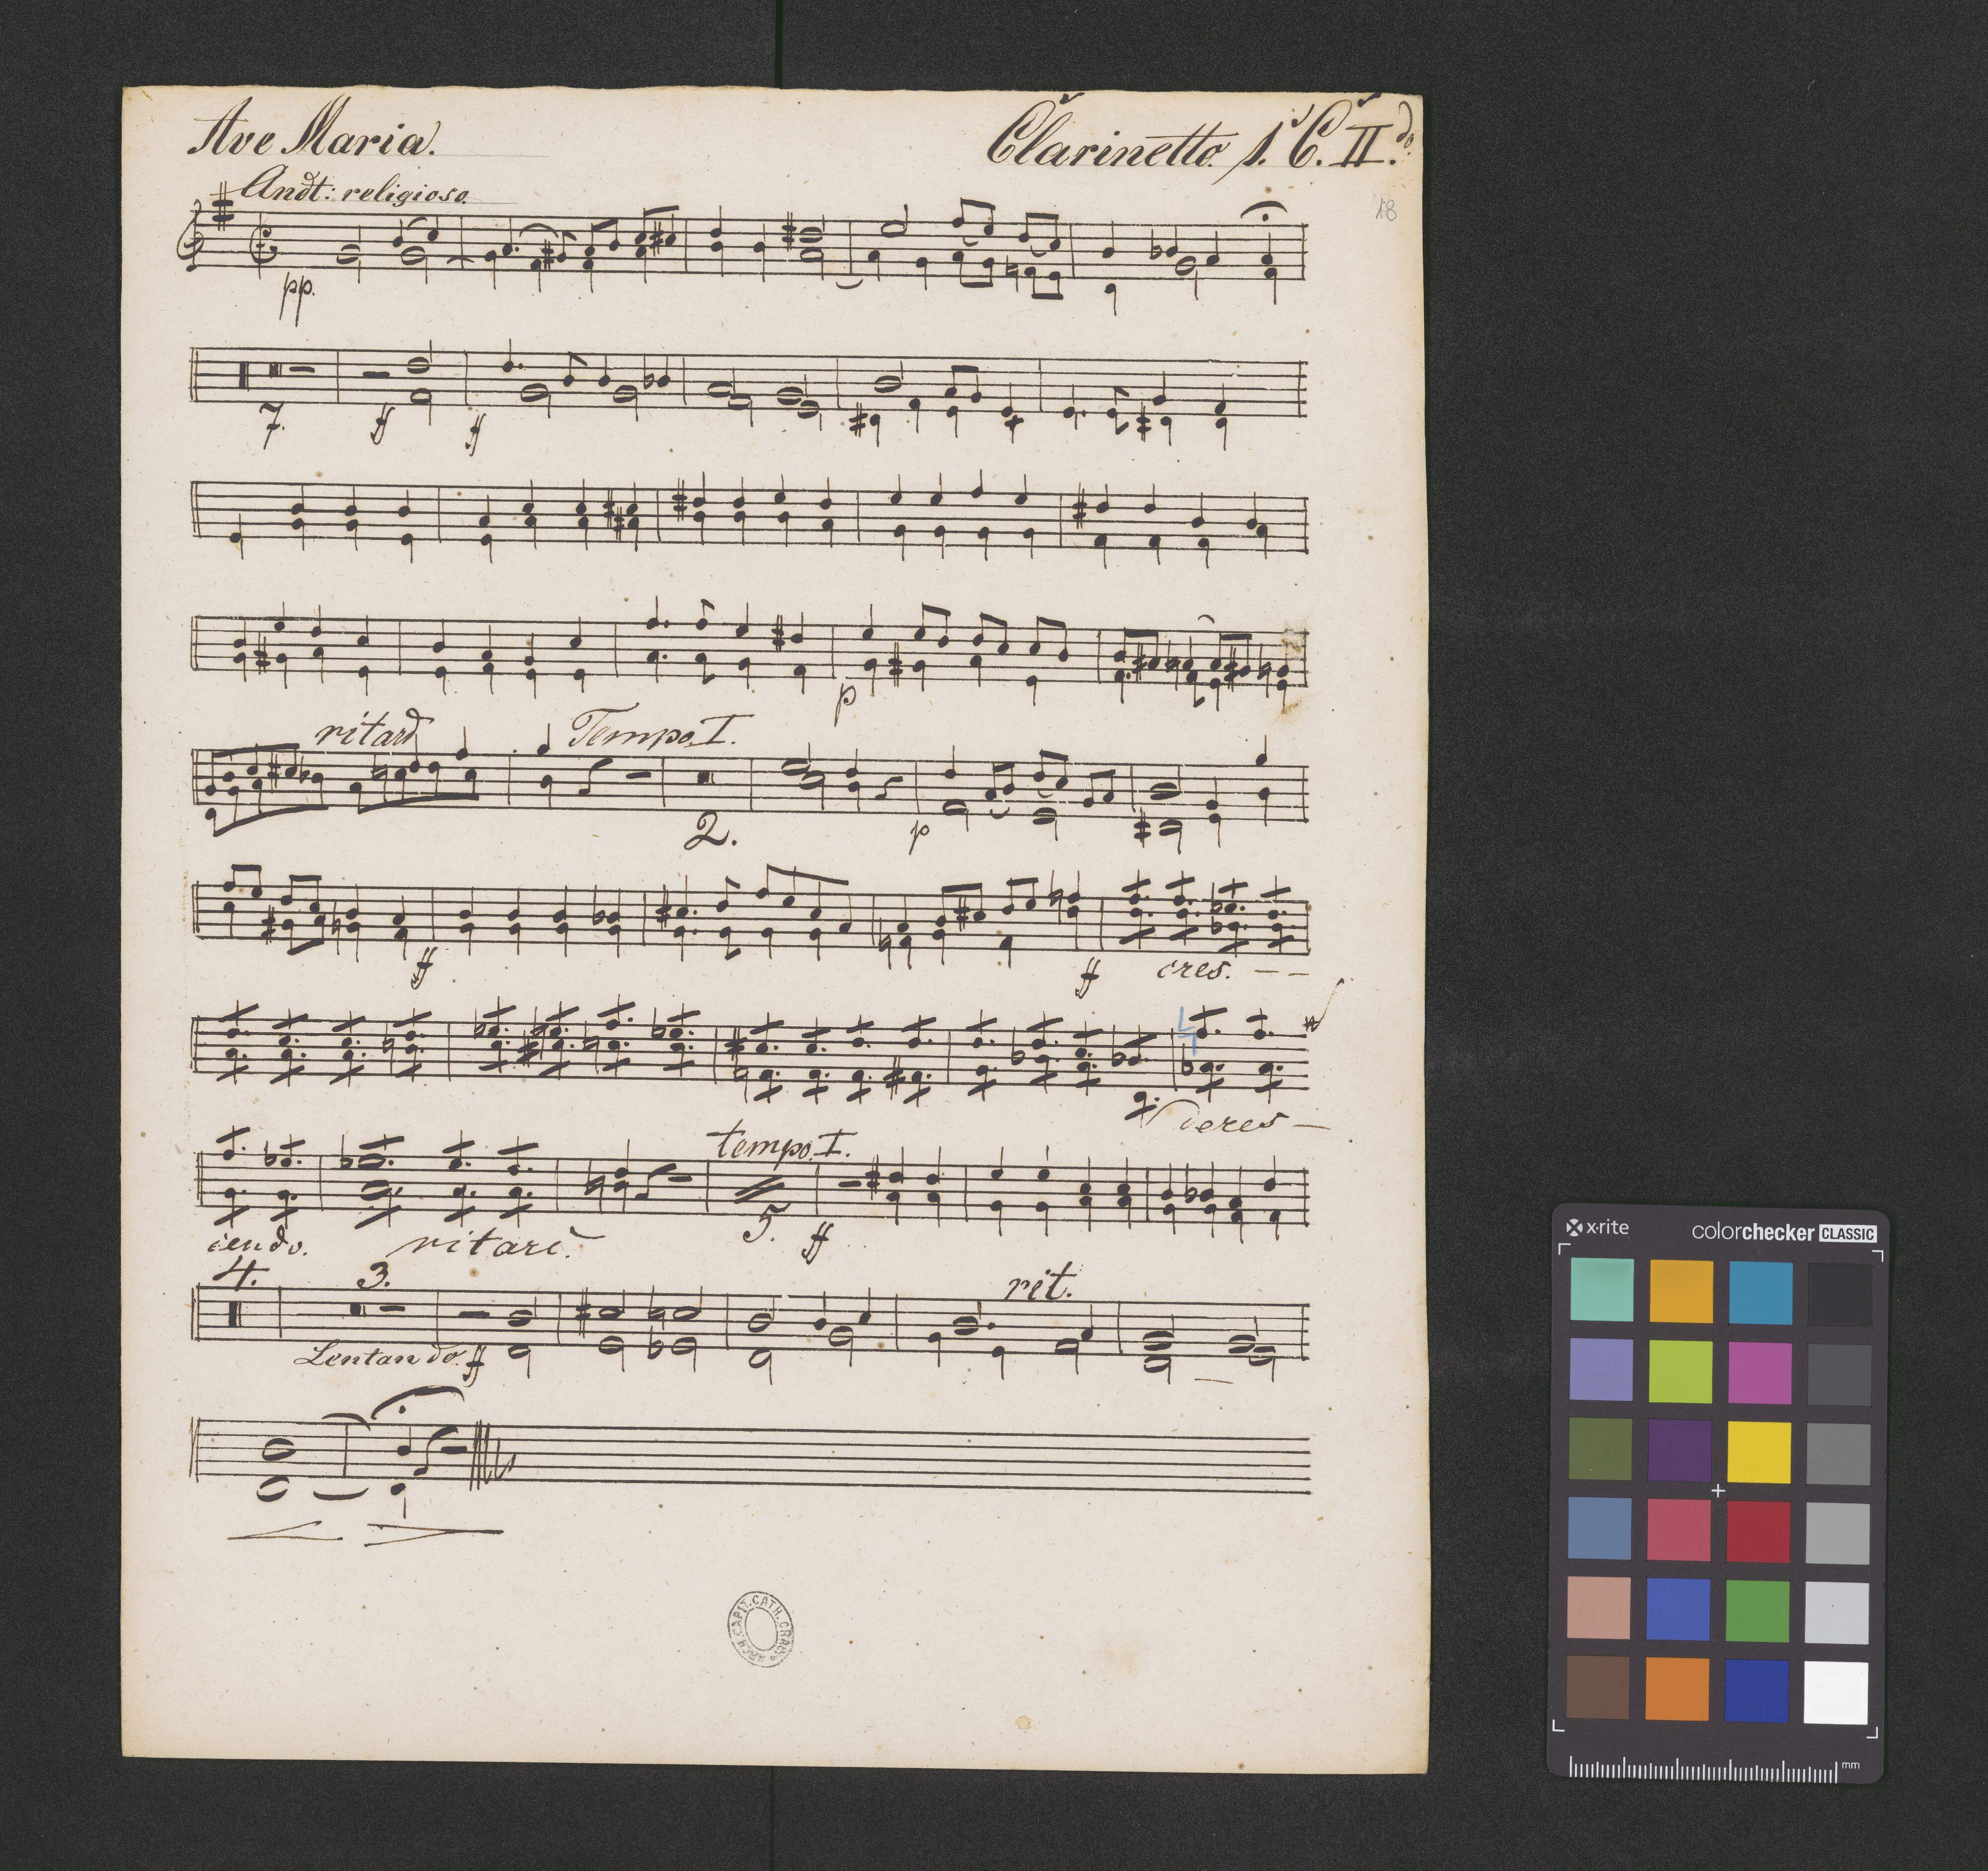 Ave Maria.
Clarinetto. 1. C. II.do
18
Andt: religioso.
pp.
7.
ff
ff
p
ritard
Tempo. I.
2.
p
ff
ff
cres. - -
4
decres -
tempo. I.
cendo.
ritard.
5.
ff
4.
3.
rit.
Lentando.
ff
ARCH. CAPIT. CATH. CRAC.
x-rite
colorchecker CLASSIC
mm